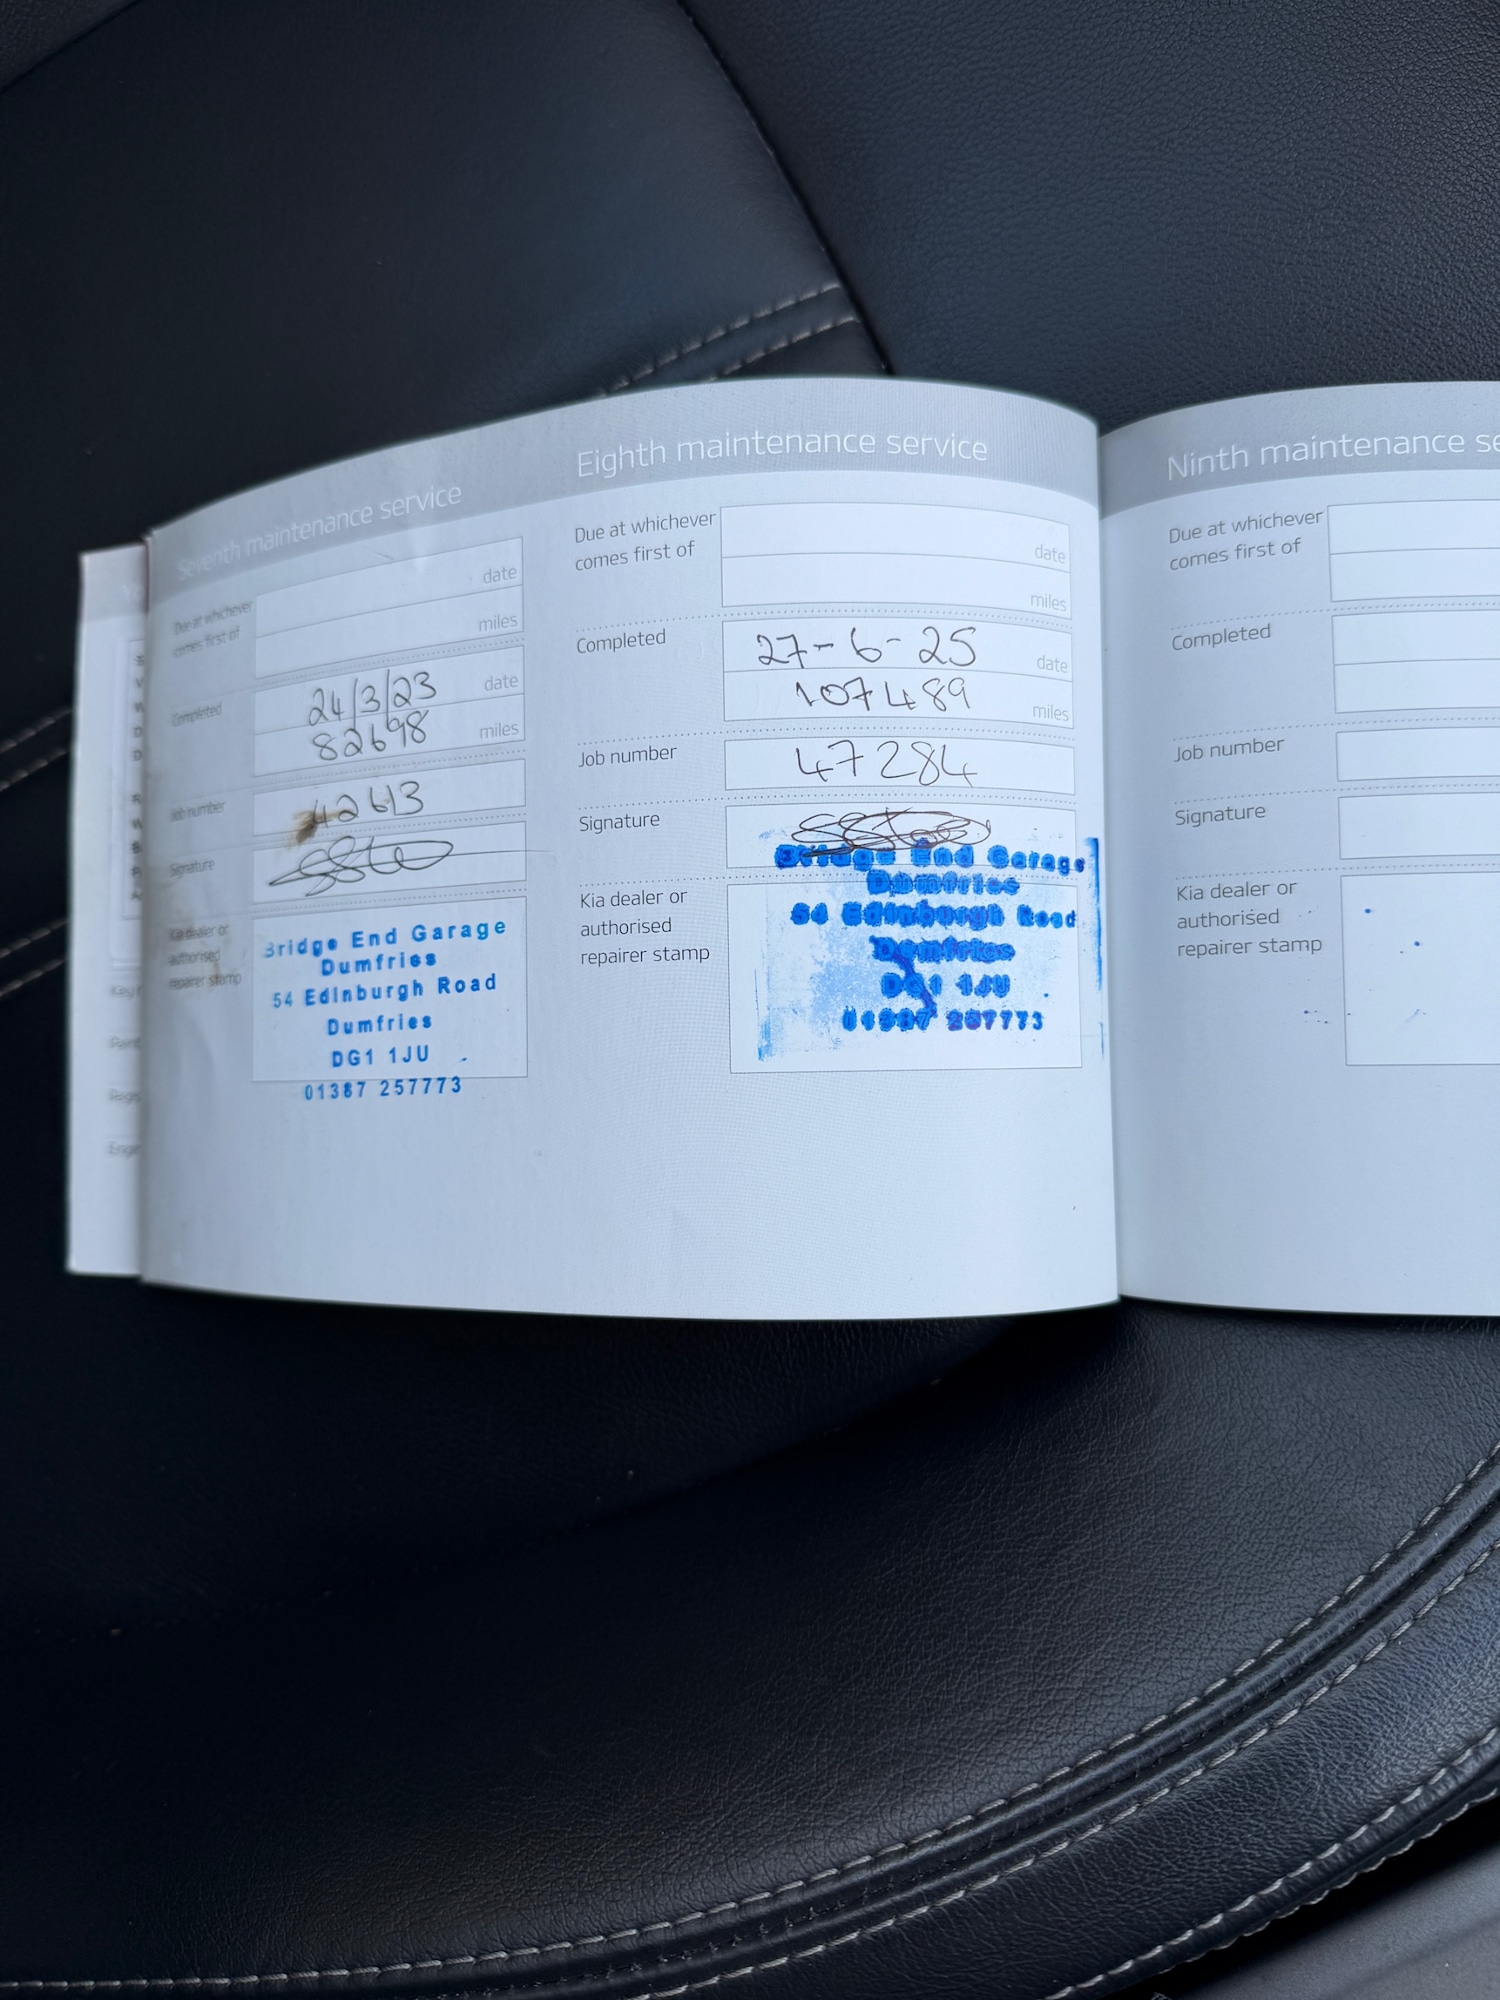 Seventh maintenance service
Due at whichever
comes first of
date
miles
Completed
24/3/23 date
82698 miles
Job number
42613
Signature
Kia dealer or
authorised
repairer stamp
Bridge End Garage
Dumfries
54 Edinburgh Road
Dumfries
DG1 1JU
01387 257773
Eighth maintenance service
Due at whichever
comes first of
date
miles
Completed
27-6-25 date
107489 miles
Job number
47284
Signature
Kia dealer or
authorised
repairer stamp
Bridge End Garage
Dumfries
54 Edinburgh Road
Dumfries
DG1 1JU
01387 257773
Ninth maintenance se
Due at whichever
comes first of
Completed
Job number
Signature
Kia dealer or
authorised
repairer stamp